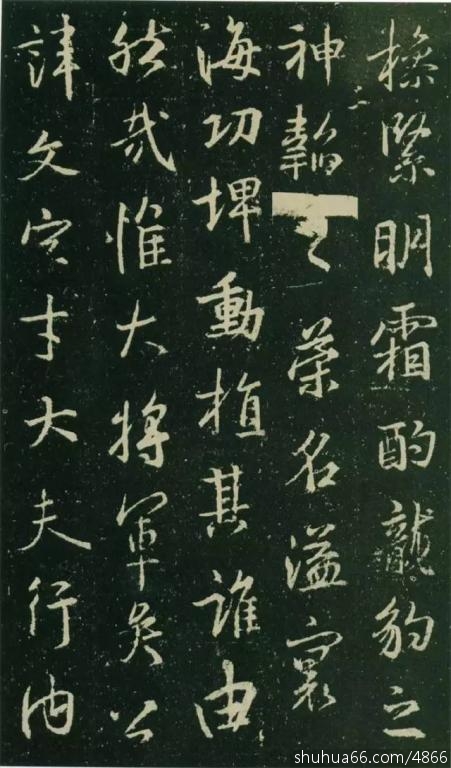 操緊明霜酌龍豹之
神韜之榮名溢寰
海功埤動植其誰由
然哉惟大將軍矣公
諱文字才大夫行內
shuhua66.com/4866